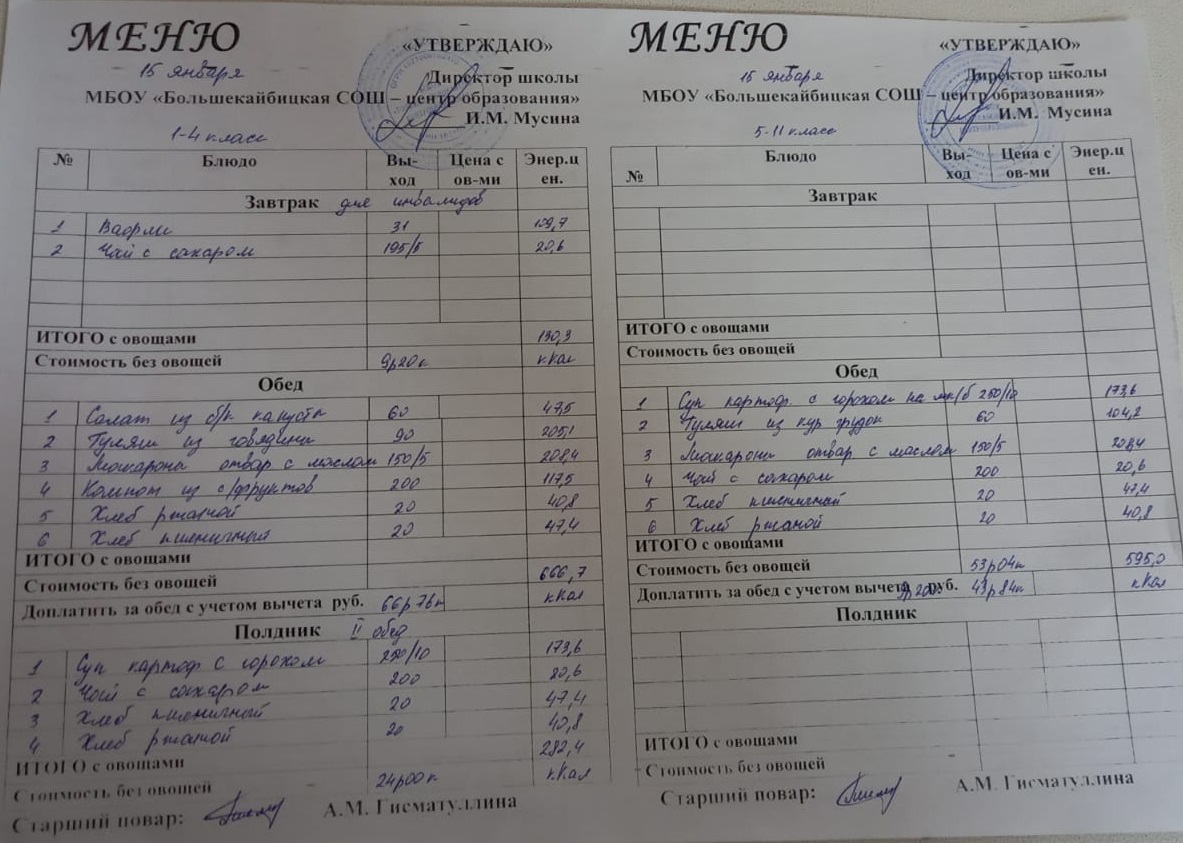 МЕНЮ
«УТВЕРЖДАЮ»
15 января
Директор школы
МБОУ «Большекайбицкая СОШ – центр образования»
И.М. Мусина
1-4 класс
№ Блюдо Вы-ход Цена с ов-ми Энер.ц ен.
Завтрак для инвалидов
1 Вафли 31 109,7
2 Чай с сахаром 195/5 20,6
ИТОГО с овощами 130,3
Стоимость без овощей 9р20к кКал
Обед
1 Салат из б/к капусты 60 47,5
2 Гуляш из говядины 90 205,1
3 Макароны отвар с маслом 150/5 208,4
4 Компот из с/фруктов 200 117,5
5 Хлеб ржаной 20 40,8
6 Хлеб пшеничный 20 47,4
ИТОГО с овощами
Стоимость без овощей 666,7
Доплатить за обед с учетом вычета руб. 66р76к кКал
Полдник II обед
1 Суп картоф с горохом 250/10 173,6
2 Чай с сахаром 200 20,6
3 Хлеб пшеничный 20 47,4
4 Хлеб ржаной 20 40,8
ИТОГО с овощами 282,4
Стоимость без овощей 24р00к кКал
Старший повар: А.М. Гисматуллина
МЕНЮ
«УТВЕРЖДАЮ»
15 января
Директор школы
МБОУ «Большекайбицкая СОШ – центр образования»
И.М. Мусина
5-11 класс
№ Блюдо Вы-ход Цена с ов-ми Энер.ц ен.
Завтрак
ИТОГО с овощами
Стоимость без овощей
Обед
1 Суп картоф. с горохом на мк/б 250/10 173,6
2 Гуляш из кур грудок 60 104,2
3 Макароны отвар с маслом 150/5 208,4
4 Чай с сахаром 200 20,6
5 Хлеб пшеничный 20 47,4
6 Хлеб ржаной 20 40,8
ИТОГО с овощами
Стоимость без овощей 53р04к 595,0
Доплатить за обед с учетом вычета 9р20к руб. 43р84к кКал
Полдник
ИТОГО с овощами
Стоимость без овощей
Старший повар: А.М. Гисматуллина